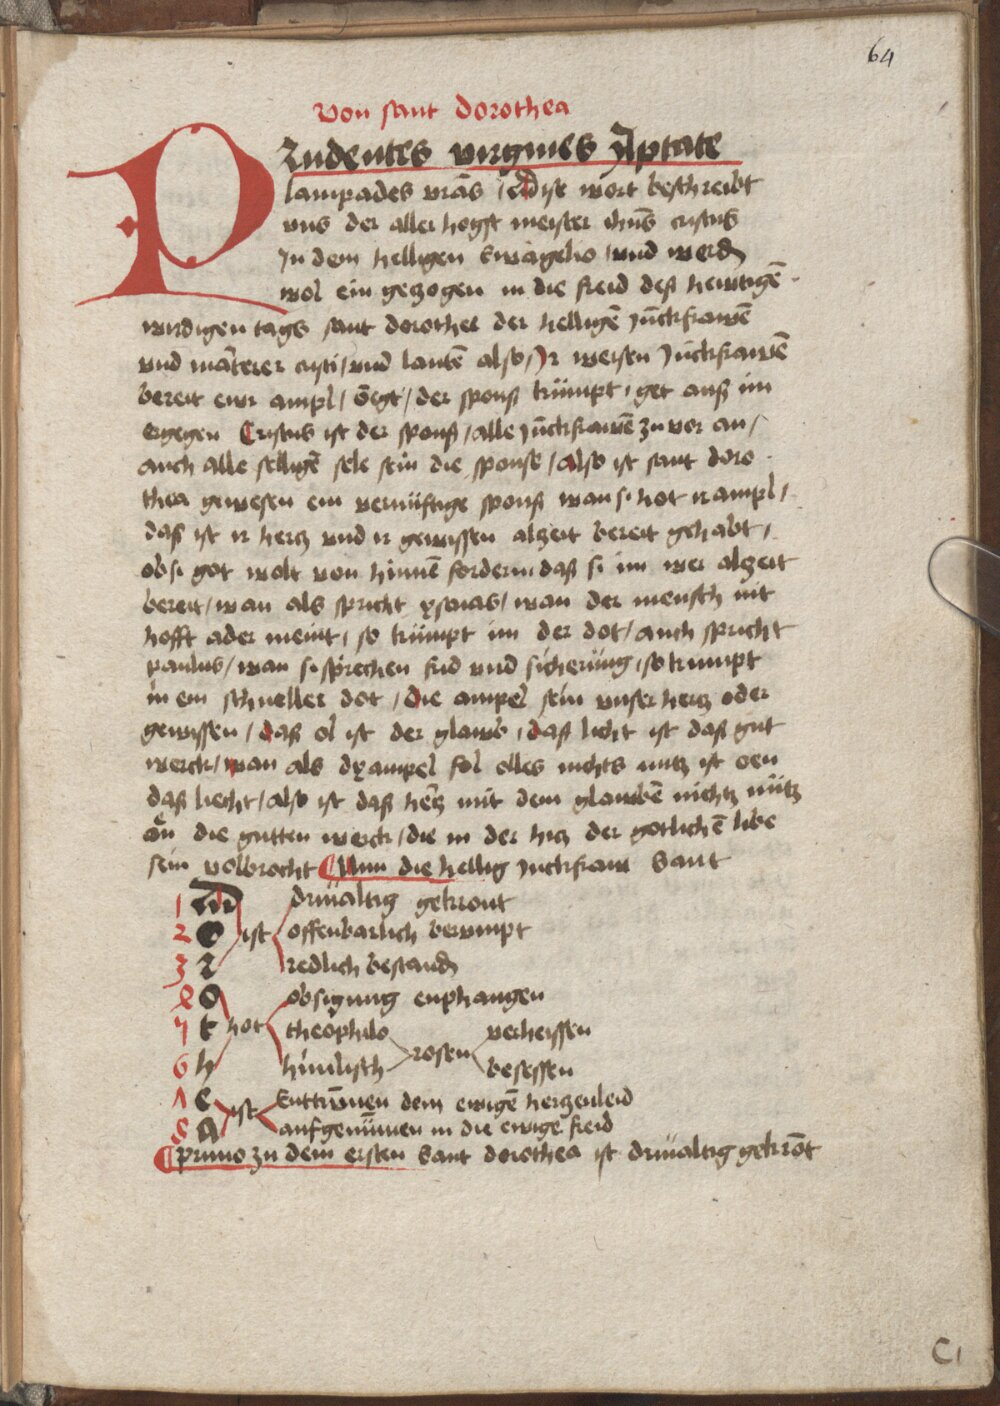 64
von sant dorothea
Prudentes virgines Aptate
lampades vrās / diſe wort beschreibt
vns der aller hogst meister ihūs cristus
Jn dem helligen Ewāgelio / vnd werdn
wol ein gezogen in die freid deß hewtigē
wirdigen tags sant dorothee der helligē Junckfrawē
vnd mārterer cristi / vnd lautē also / Jr weisen Junckfrawē
bereit ewr ampl / segt / der sponß kumpt / get auß im
engegen Cristus ist der sponß / alle Junckfrawē zu vor an /
auch alle selligē sele sein die sponse / also ist sant doro
thea gewesen ein vernüftige sponß wan si hot ir ampl /
daß ist ir hertz vnd ir gewissen alzeit bereit gehabt /
ob si got wolt von hinnē fordern / daß si im wer alzeit
bereit / wan als spricht ysaias / wan der mensch nit
hofft ader meint / so kumpt im der dot / auch spricht
paulus / wan si sprechen frid vnd sicherung / so kumpt
in ein schneller dot / die ampel sein vnser hertz oder
gewissen / daß ol ist der glawb / daß licht ist daß gut
werck / wan als dy ampel sol olles nichts nutz ist oen
daß liecht / also ist daß hertz mit dem glawbē nichtz nütz
an die gutten werck / die in der hitz der gotlichē libe
sein volbrocht Nun die hellig Junckfraw Sant
1 D driualtig gekront
2 O ist offenbarlich berumpt
3 R redlich bestandn
4 O obsigung enphangen
5 t hot theophilo rosen verheissen
6 h himlisch besessen
7 e ist Entrunnen dem ewigē hertzenleid
8 A aufgenumen in die ewige freid
primo zu dem ersten Sant dorothea ist driualtig gekrōt
C1